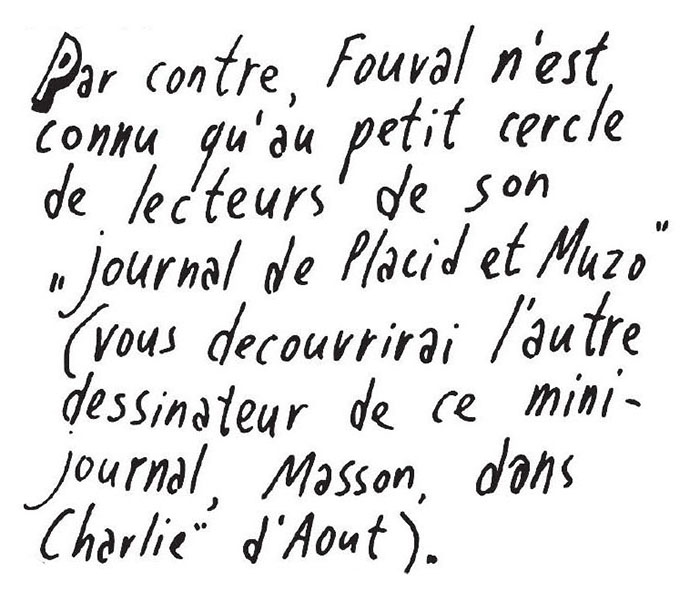 Par contre, Fouval n'est
connu qu'au petit cercle
de lecteurs de son
„journal de Placid et Muzo"
(vous decouvrirai l'autre
dessinateur de ce mini-
journal, Masson, dans
Charlie" d'Aout).